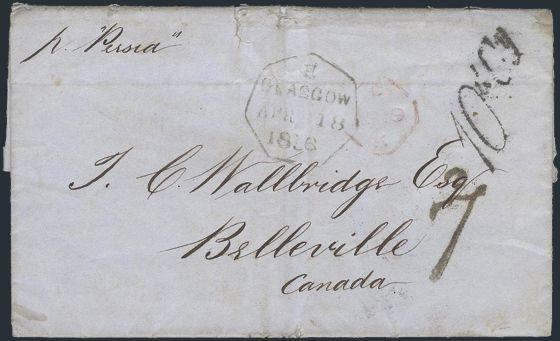 p. "Persia"
H
GLASGOW
APR 18
1856
9
10
T. C. Wallbridge Esq
Belleville
Canada